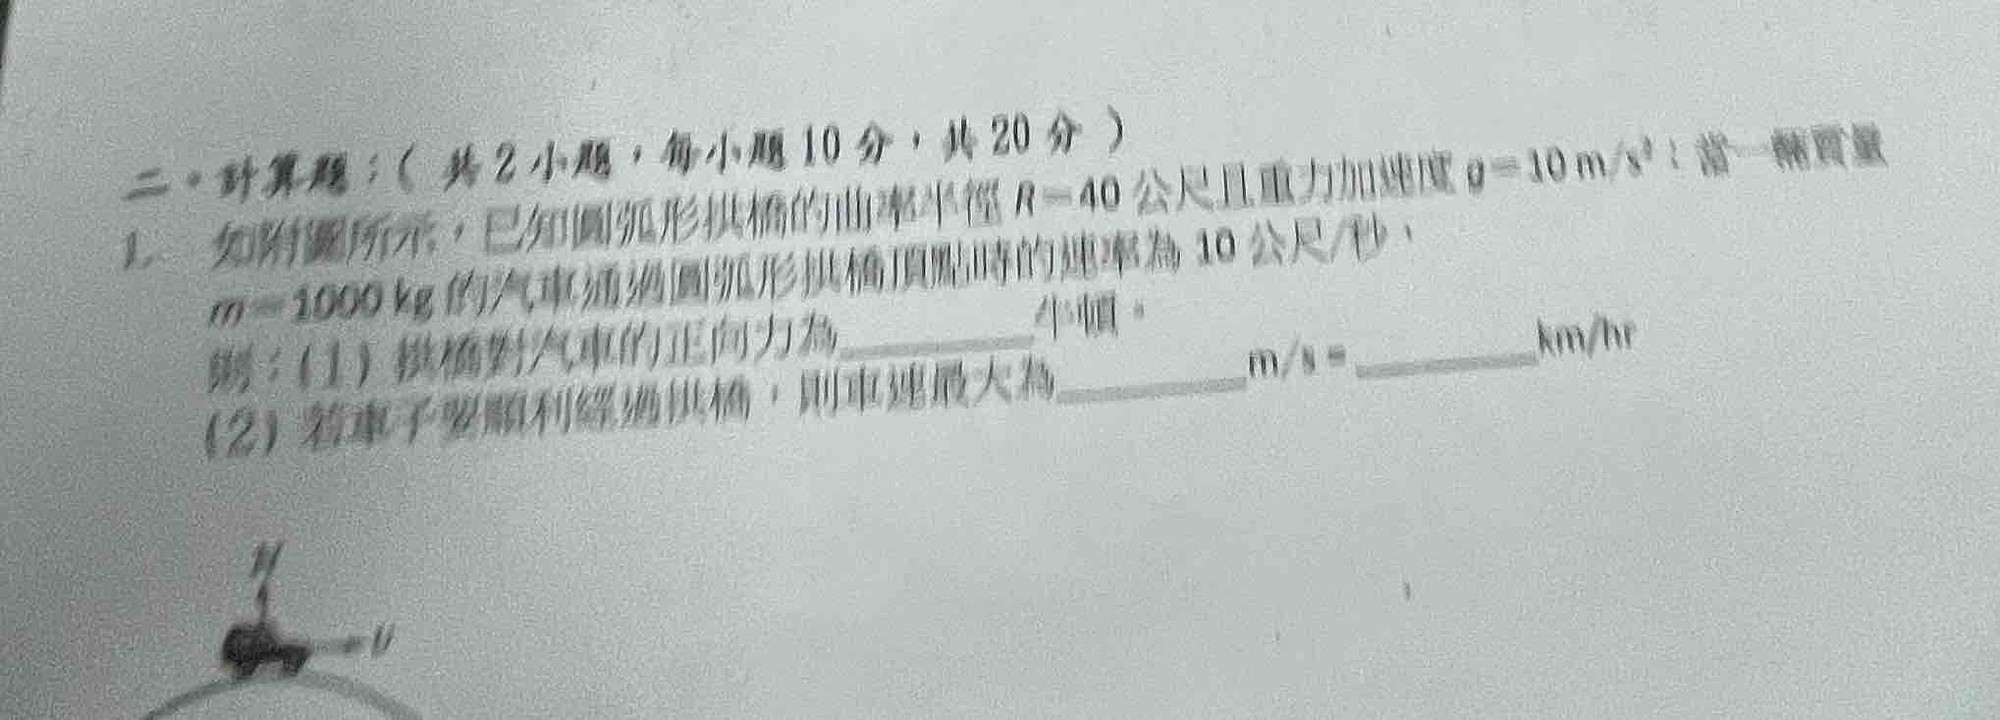 二。計算題：( 共 2 小題，每小題 10 分，共 20 分 )
1. 如附圖所示，已知圓弧形拱橋的曲率半徑 R=40 公尺且重力加速度 g=10 m/s²；當一輛質量
m=1000 kg 的汽車通過圓弧形拱橋頂點時的速率為 10 公尺/秒，
則：(1) 拱橋對汽車的正向力為________牛頓。
(2) 若車子要順利經過拱橋，則車速最大為________m/s=________km/hr
N
v